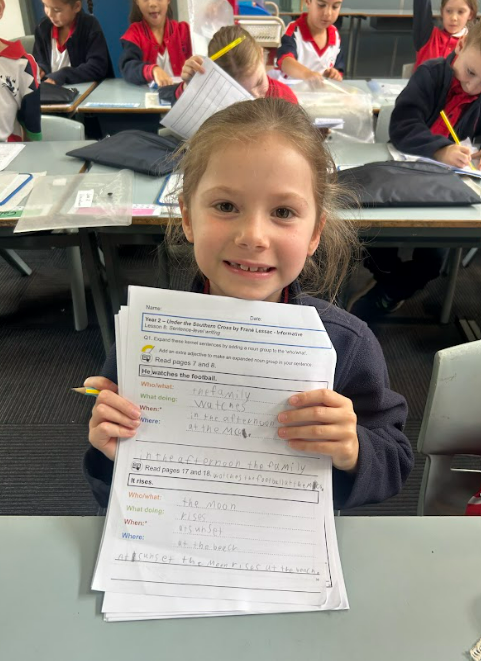 Name: Date:
Year 2 – Under the Southern Cross by Frané Lessac - Informative
Lesson 5: Sentence-level writing
Q1. Expand these kernel sentences by adding a noun group to the who/what.
Add an extra adjective to make an expanded noun group in your sentence.
Read pages 7 and 8.
He watches the football.
Who/what: the family
What doing: watches
When:* in the afternoon
Where: at the MCG.
in the afternoon the family
watches the football at the MCG
Read pages 17 and 18.
It rises.
Who/what: the moon
What doing: rises
When:* at sunset
Where: at the beach
at sunset the moon rises at the beach.